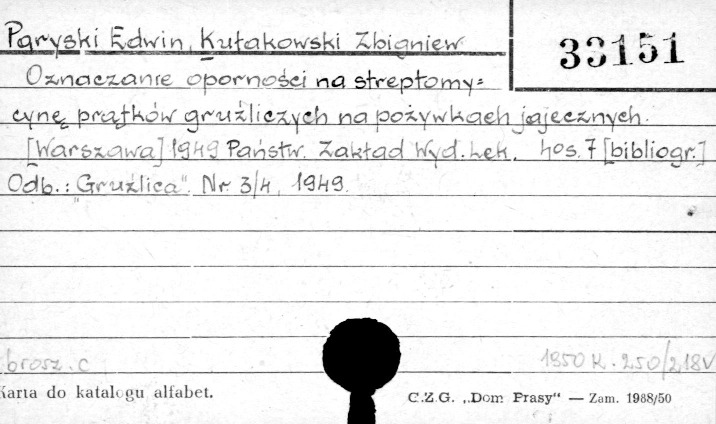 Paryski Edwin, Kułakowski Zbigniew
33151
Oznaczanie oporności na streptomy=
cynę prątków gruźliczych na pożywkach jajecznych.
[Warszawa] 1949 Państw. Zakład Wyd. Lek. 4os. 7 [bibliogr.]
Odb.: "Gruźlica". Nr 3/4, 1949.
brosz. c
1850 K. 250/218V
Karta do katalogu alfabet.
C.Z.G. „Dom Prasy" — Zam. 1988/50